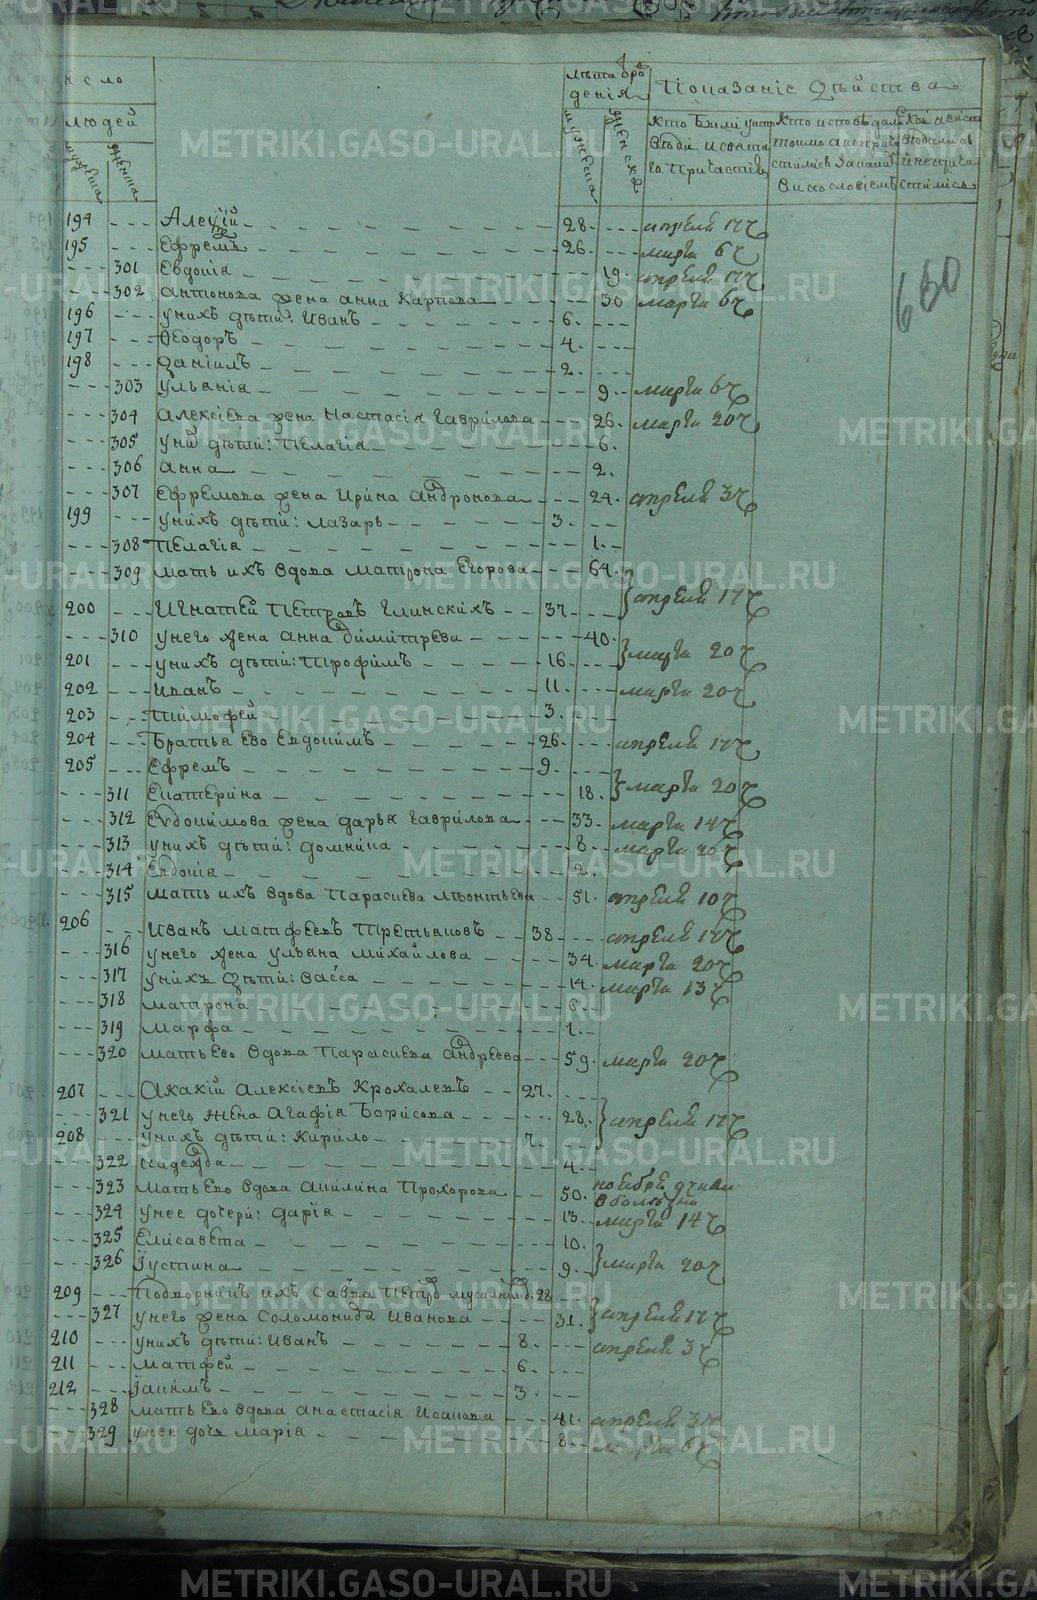 число
людей
мужеска
женска
лѣта брож
денія
мужеска
женска
Показаніе Дѣйства
Кто были у испо
вѣди и свята
го Причастія
Кто исповѣдал
винословіемъ
стились
650
194 --- Алеѯій 28. --- апреля 17ч
195 --- Ефремъ 26. --- марта 6ч
--- 301 Евдокія 19. апреля 17ч
--- 302 Антонова жена Анна Карпова 30 марта 6ч
196 --- у нихъ дѣти: Иванъ 6.
197 --- Ѳеодоръ 4.
198 --- Даніилъ 2.
--- 303 Ульянія 9. марта 6ч
--- 304 Алексіева жена Настасія Гаврилова 26. марта 20ч
--- 305 у ниⷯ дѣти: Пелагія 6.
--- 306 Анна 2.
--- 307 Ефремова жена Ирина Андронова 24. апреля 3ч
199 --- у нихъ дѣти: Лазарь 3.
--- 308 Пелагія 1.
--- 309 мать ихъ вдова Матрона Егорова 64.
апреля 17ч
200 --- Игнатей Петровъ Глинскихъ 37.
--- 310 у него жена Анна Димитрева 40.
201 --- у нихъ дѣти: Трофимъ 16. марта 20ч
202 --- Иванъ 11. марта 20ч
203 --- Тимофей 3.
204 --- Братья ево Евдокимъ 26. апреля 17ч
205 --- Ефремъ 9.
марта 20ч
--- 311 Екатерина 18.
--- 312 Евдокимова жена Дарья Гаврилова 33. марта 14ч
--- 313 у нихъ дѣти: Домнина 8. марта 20ч
--- 314 Евдокія 2.
--- 315 мать ихъ вдова Парасиева Леонтьева 51. апреля 10ч
206 --- Иванъ Матфеевъ Третьяковъ 38. апреля 17ч
--- 316 у него жена Ульяна Михайлова 34. марта 20ч
--- 317 у нихъ дѣти: Васса 14. марта 13ч
--- 318 Матрона 6.
--- 319 Марфа 1.
--- 320 мать Ево вдова Парасиева Андреева 59. марта 20ч
207 --- Акакій Алексіевъ Крохалевъ 27.
--- 321 у него жена Агафія Борисова 28. апреля 17ч
208 --- у нихъ дѣти: Кирило 7.
--- 322 Надежда 4.
--- 323 мать Ево вдова Акилина Прохорова 50. ноября
в болезни
--- 324 у нее дочери: Дарія 13. марта 14ч
--- 325 Елисавета 10.
--- 326 Іустина 9. марта 20ч
209 --- Подворникъ ихъ Савва Петров 28
--- 327 у него жена Соломонида Иванова 31. апреля 17ч
210 --- у нихъ дѣти: Иванъ 8. апреля 3ч
211 --- Матфей 6.
212 --- Іакимъ 3.
--- 328 мать Ево вдова Анастасія Исакова 41. апреля 3ч
--- 329 у нее дочь Марія 8. марта 6ч
METRIKI.GASO-URAL.RU